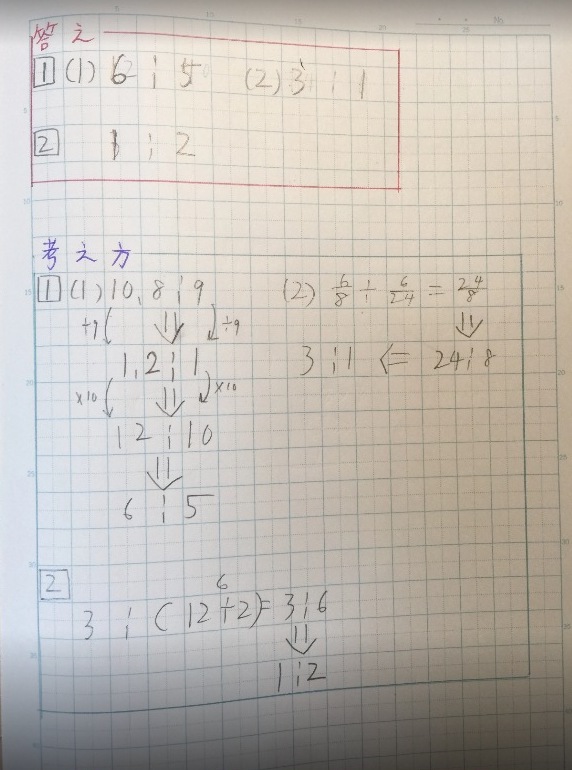 答え
1 (1) 6 : 5 (2) 3 : 1
2 1 : 2
考え方
1 (1) 10.8 : 9 (2) 6/8 ÷ 6/24 = 24/8
÷9 ⇓ ÷9 ⇓
1.2 : 1 3 : 1 ⇐ 24 : 8
×10 ⇓ ×10
12 : 10
⇓
6 : 5
2
6
3 : (12÷2) = 3 : 6
⇓
1 : 2